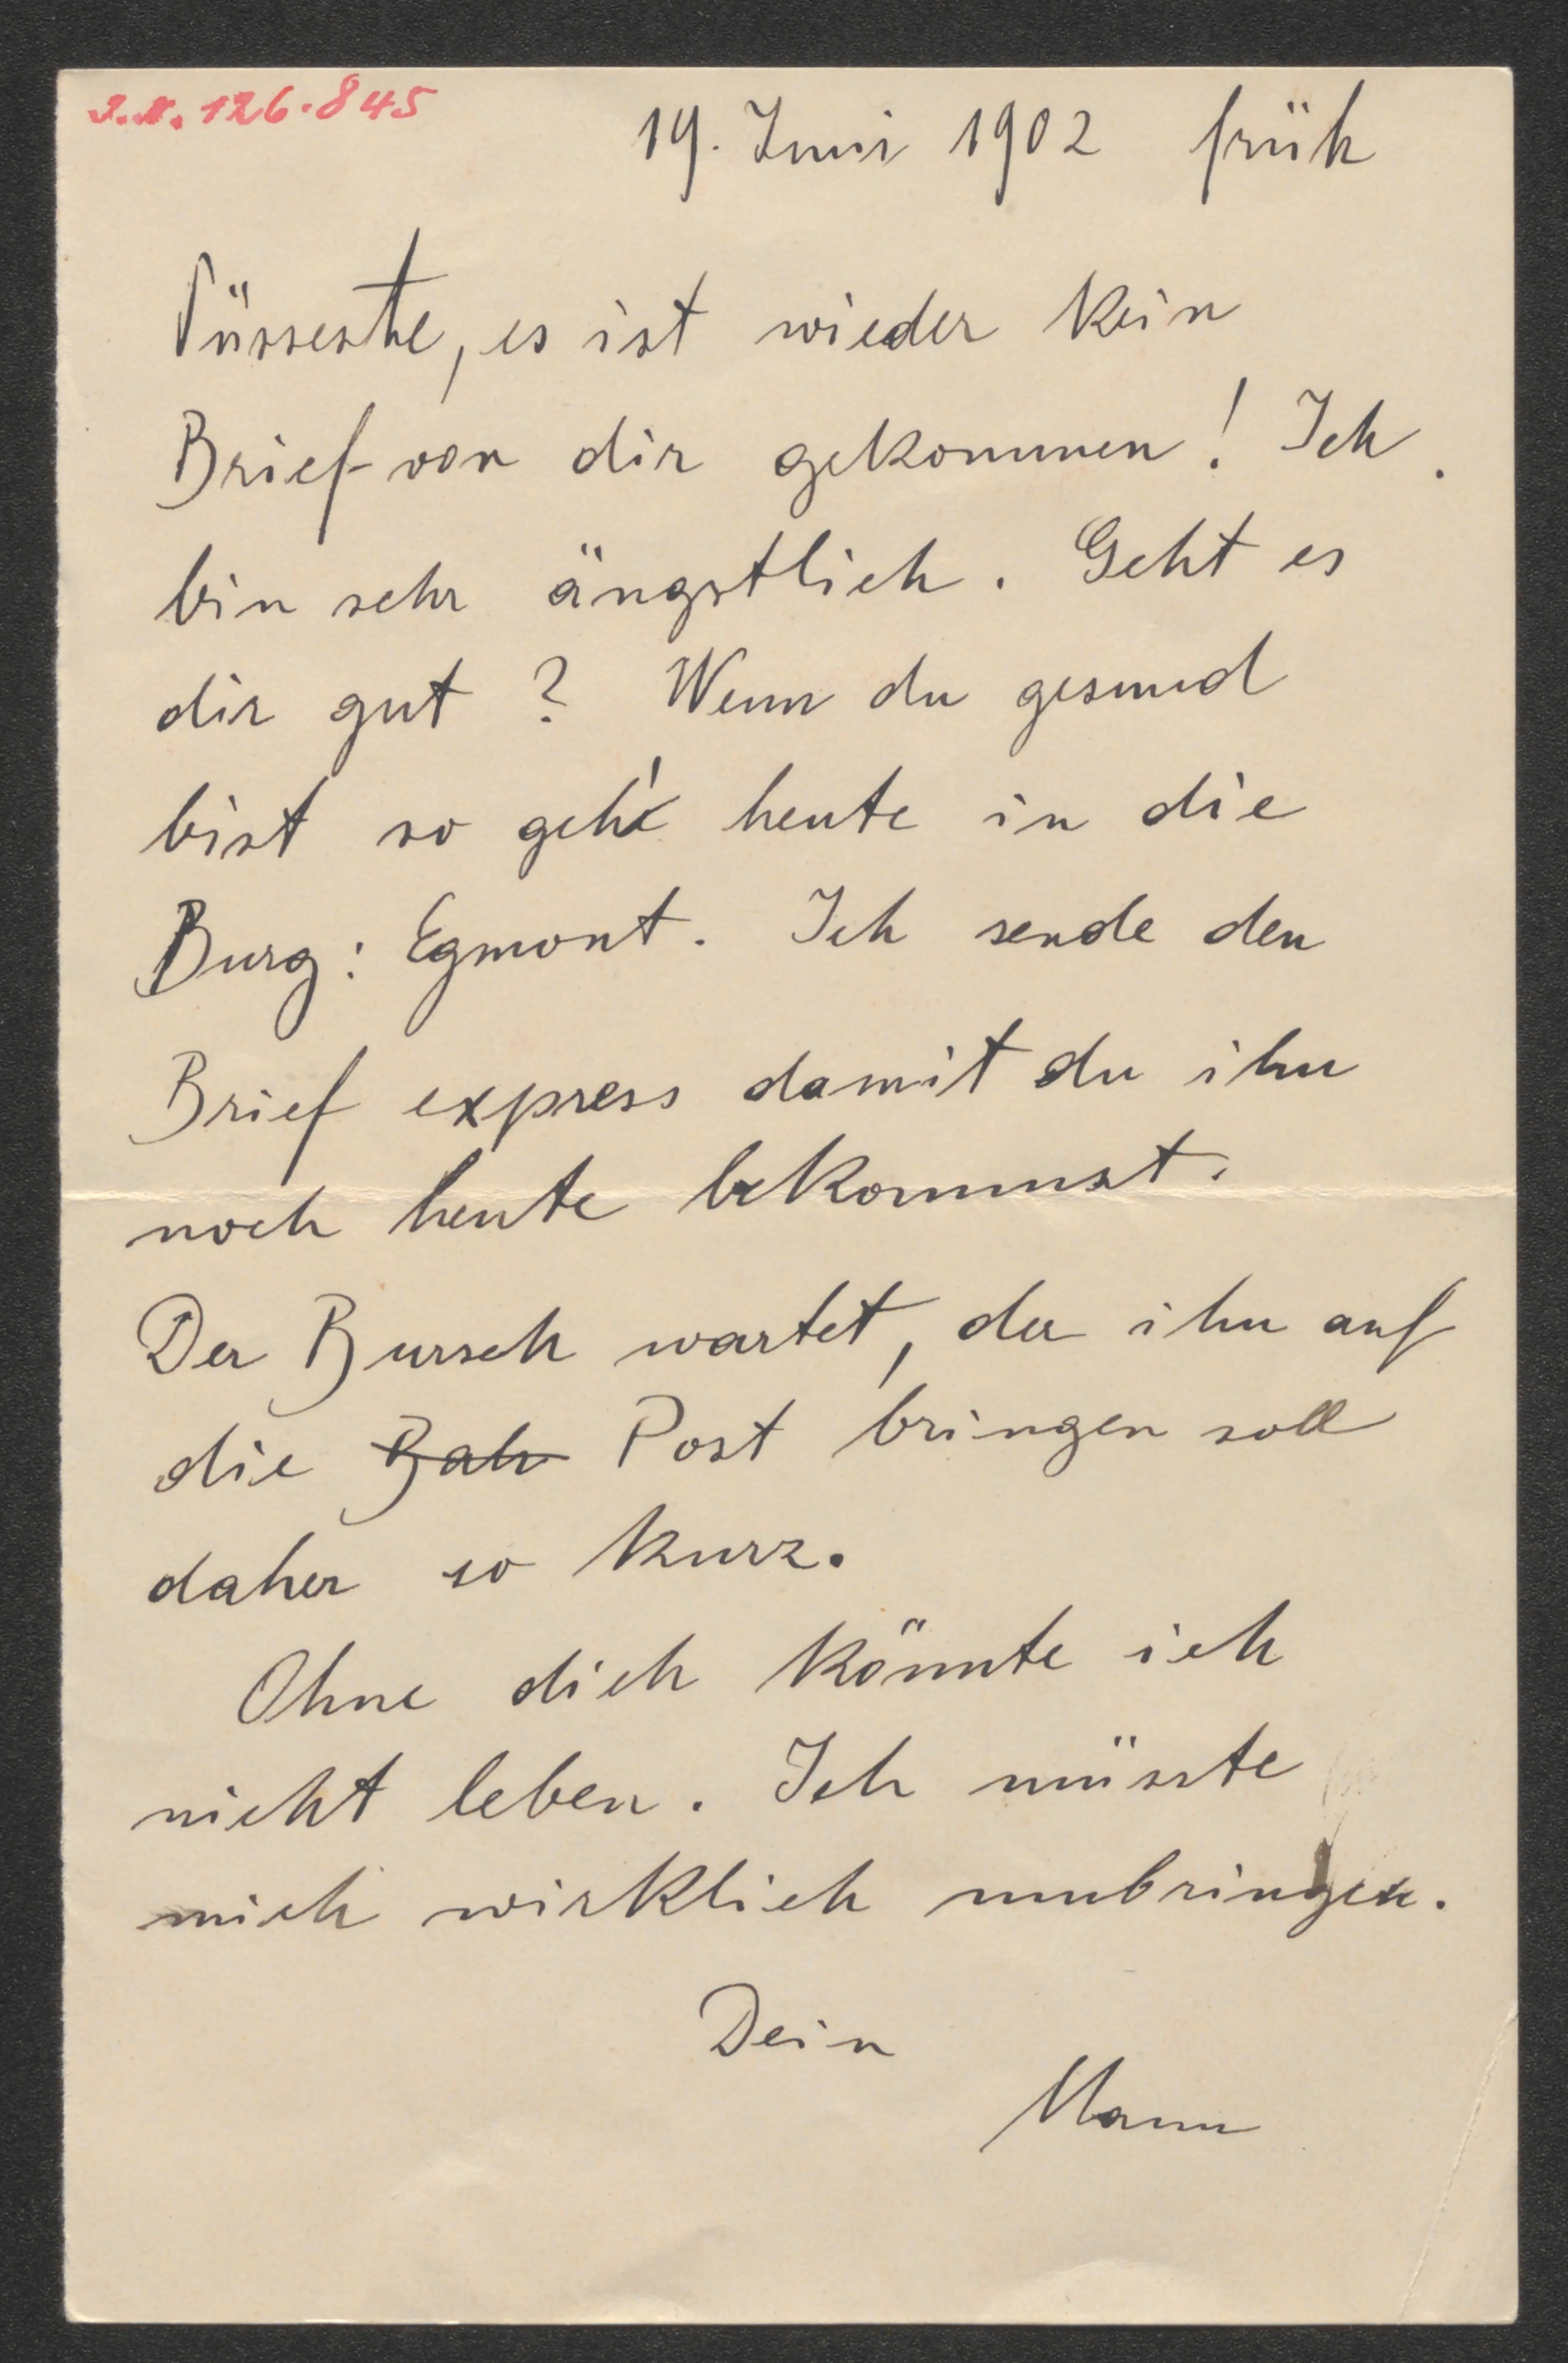 I.N. 126.845
19. Juni 1902 früh
Süsseste, es ist wieder kein
Brief von dir gekommen! Ich
bin sehr ängstlich. Geht es
dir gut? Wenn du gesund
bist so geh' heute in die
Burg: Egmont. Ich sende den
Brief express damit du ihn
noch heute bekommst.
Der Bursch wartet, der ihn auf
die Bah Post bringen soll
daher so kurz.
Ohne dich könnte ich
nicht leben. Ich müsste
mich wirklich umbringen.
Dein
Mann